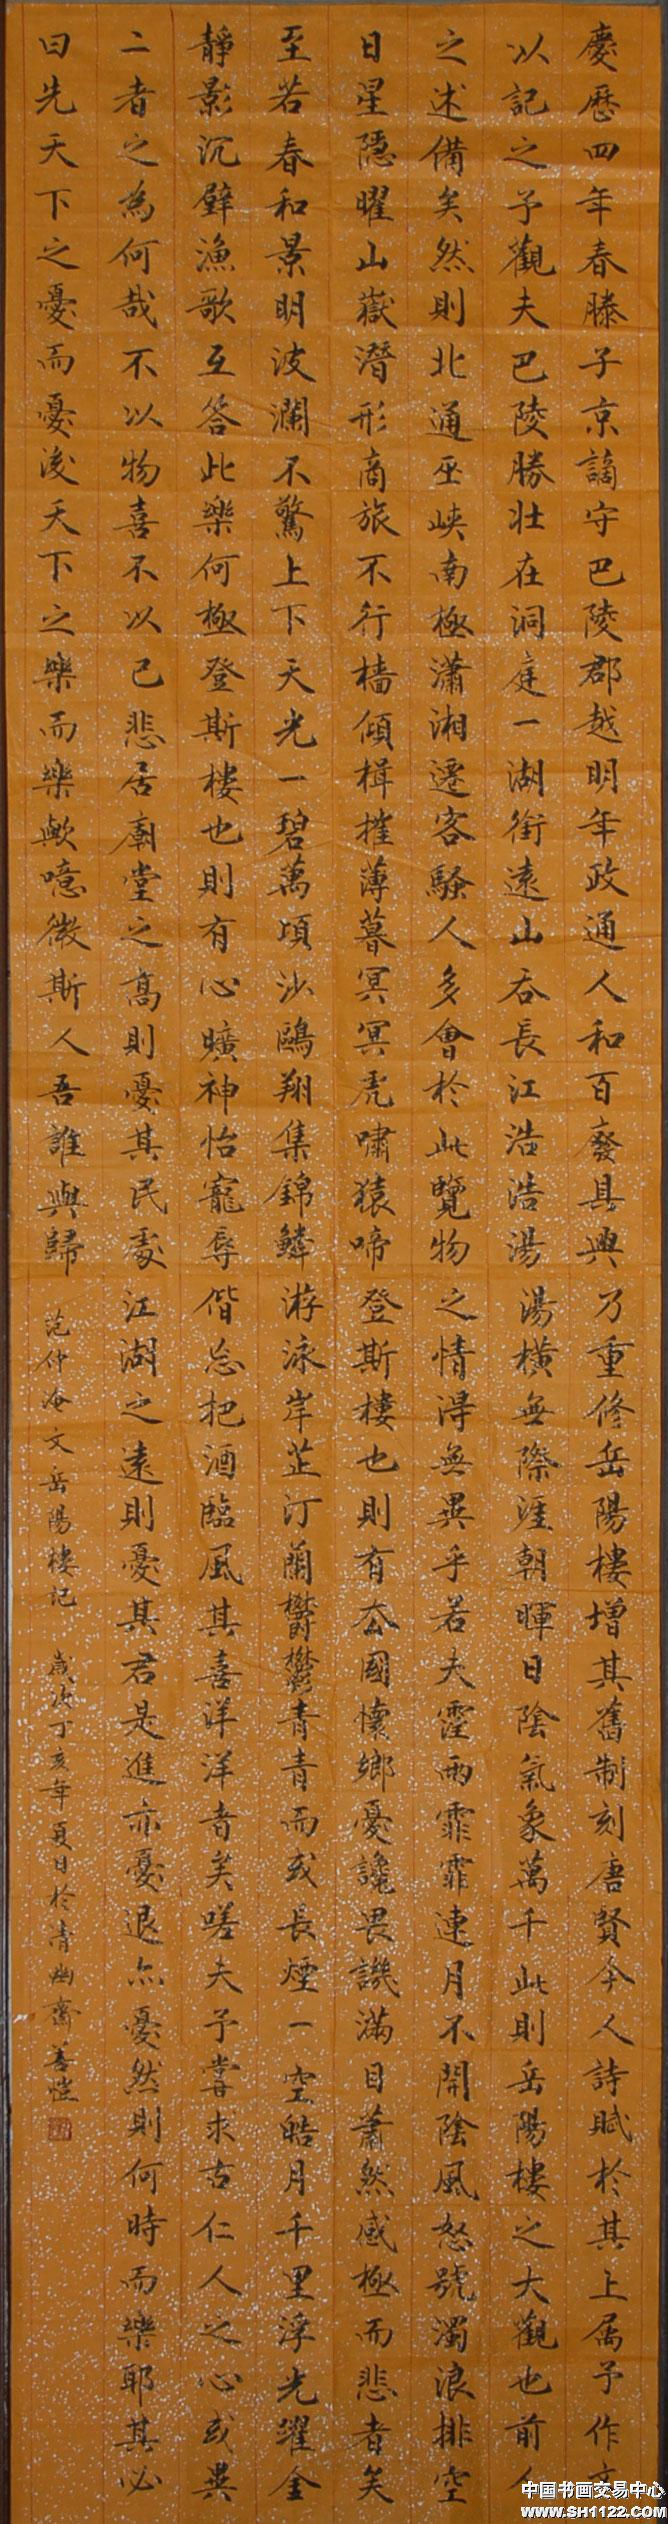 慶歷四年春滕子京謫守巴陵郡越明年政通人和百廢具興乃重修岳陽樓增其舊制刻唐賢今人詩賦於其上属予作文
以記之予觀夫巴陵勝壯在洞庭一湖銜遠山吞長江浩浩湯湯橫無際涯朝暉日陰氣象萬千此則岳陽樓之大觀也前人
之述備矣然則北通巫峽南極瀟湘遷客騷人多會於此覽物之情得無異乎若夫霪雨霏霏連月不開陰風怒號濁浪排空
日星隱曜山嶽潛形商旅不行檣傾楫摧薄暮冥冥虎嘯猿啼登斯樓也則有去國懷鄉憂讒畏譏滿目蕭然感極而悲者矣
至若春和景明波瀾不驚上下天光一碧萬頃沙鷗翔集錦鱗游泳岸芷汀蘭鬱鬱青青而或長煙一空皓月千里浮光躍金
靜影沉璧漁歌互答此樂何極登斯樓也則有心曠神怡寵辱偕忘把酒臨風其喜洋洋者矣嗟夫予嘗求古仁人之心或異
二者之為何哉不以物喜不以己悲居廟堂之高則憂其民處江湖之遠則憂其君是進亦憂退亦憂然則何時而樂耶其必
曰先天下之憂而憂後天下之樂而樂歟噫微斯人吾誰與歸
范仲淹文岳陽樓記 歲次丁亥年夏日於清幽齋善愷
中国书画交易中心
www.SH1122.com